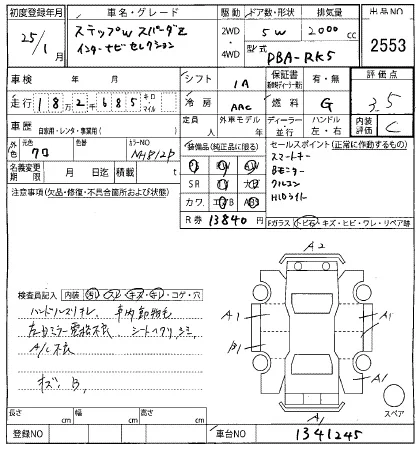 初度登録年月 車名・グレード 駆動 ドア数・形状 排気量 出品NO
25/1月 ステップW スパーダZ 2WD 5W 2000cc 2553
インターナビセレクション ・4WD 型式 DBA-RK5
車検 年 月 シフト IA 保証書 有・無 評価点
走行 18万2千685 キロ・マイル 冷房 AAC 燃料 G 3.5
車歴 定員 外車モデル ディーラー ハンドル 内装評価 C
自家用・レンタ・事業用( ) 人 年 並行 左・右
外色 元色 色替 カラーNO 装備品(純正品に限る) セールスポイント(正常に作動するもの)
クロ NH812P スマートキー
名義変更期限 月 日 積載 t SR Bモニター
注意事項(欠品・修復・不具合箇所および状態) カワ クルコン
HIDライト
R券 13840円 Fガラス トビ石・キズ・ヒビ・ワレ・リペア跡
A2
検査員記入 内装 コゲ・穴
ハンドルスリキレ
左ドアミラー電格不良 シートヘタリ、シミ
A/C不良
キズ、B
A1 A1
B1 A1
A1
スペア
長さ cm 幅 cm 高さ cm
登録NO 車台NO 1341245